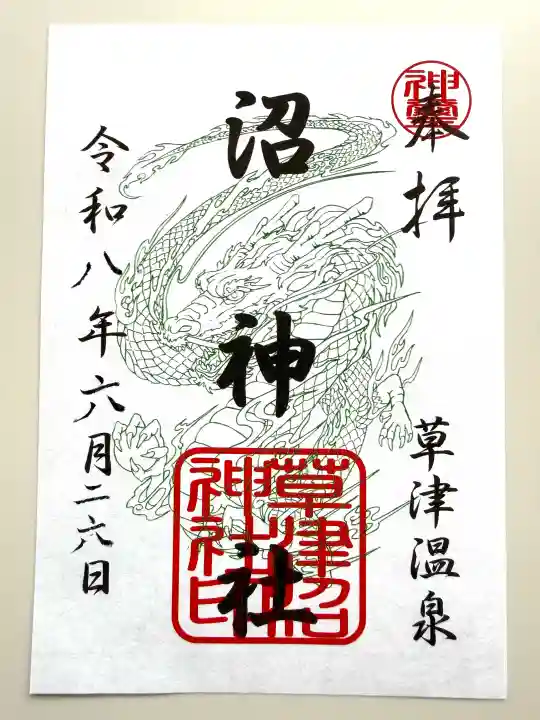 奉拝
草津温泉
沼神社
草津沼
神社印
令和八年六月二六日